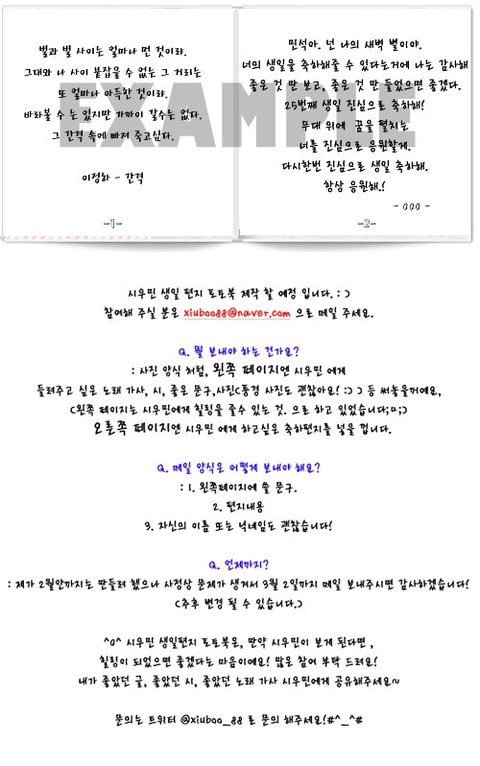 별과 별 사이는 얼마나 먼 것이랴.
그대와 나 사이 붙잡을 수 없는 그 거리는
또 얼마나 아득한 것이랴.
바라볼 수 는 있지만 가까이 갈수는 없다.
그 간격 속에 빠져 죽고싶다.
이정하 - 간격
-1-
EXAMPLE
민석아. 넌 나의 새벽 별이야.
너의 생일을 축하해줄 수 있다는거에 나는 감사해
좋은 것 만 보고, 좋은 것 만 들었으면 좋겠다.
25번째 생일 진심으로 축하해!
무대 위에 꿈을 펼치는
너를 진심으로 응원할게.
다시한번 진심으로 생일 축하해.
항상 응원해.!
- 000 -
-2-
시우민 생일 편지 포토북 제작 할 예정 입니다. : )
참여해 주실 분은 xiuboo88@naver.com 으로 메일 주세요.
Q. 뭘 보내야 하는 건가요?
: 사진 양식 처럼, 왼쪽 페이지엔 시우민 에게
들려주고 싶은 노래 가사, 시, 좋은 문구,사진(풍경 사진도 괜찮아요! :) ) 등 써놓을꺼에요,
(왼쪽 페이지는 시우민에게 힐링을 줄수 있는 것. 으로 하고 있었습니다;ㅁ;)
오른쪽 페이지엔 시우민 에게 하고싶은 축하편지를 넣을 껍니다.
Q. 메일 양식은 어떻게 보내야 해요?
: 1. 왼쪽페이지에 쓸 문구.
2. 편지내용
3. 자신의 이름 또는 닉네임도 괜찮습니다!
Q. 언제까지?
: 제가 2월안까지는 만들려 했으나 사정상 문제가 생겨서 3월 2일까지 메일 보내주시면 감사하겠습니다!
(추후 변경 될 수 있습니다.)
^0^ 시우민 생일편지 포토북은, 만약 시우민이 보게 된다면 ,
힐링이 되었으면 좋겠다는 마음이에요! 많은 참여 부탁 드려요!
내가 좋았던 글, 좋았던 시, 좋았던 노래 가사 시우민에게 공유해주세요~
문의는 트위터 @xiuboo_88 로 문의 해주세요!#^_^#